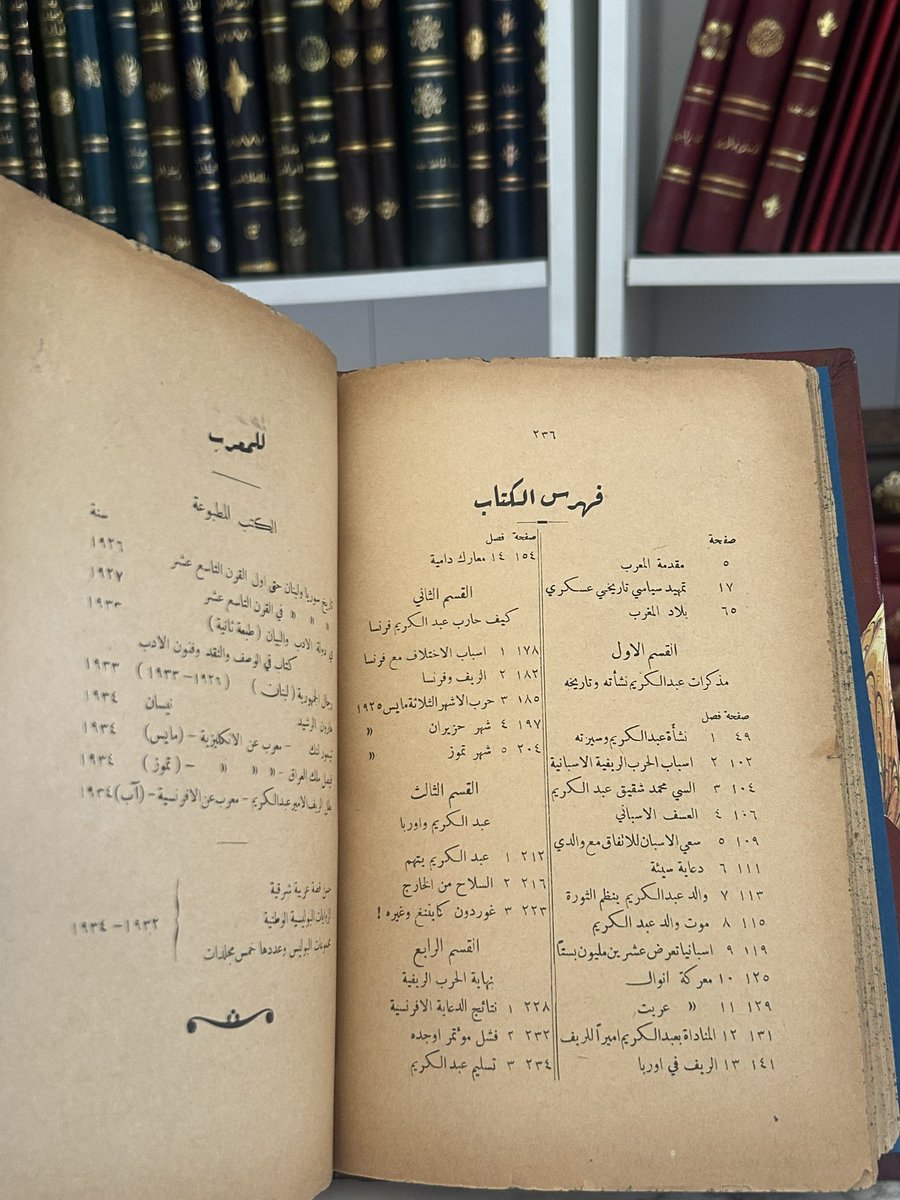 ٢٣٦
فهرس الكتاب
صفحة
٥ مقدمة المعرب
١٧ تمهيد سياسي تاريخي عسكري
٦٥ بلاد المغرب
القسم الاول
مذكرات عبد الكريم نشأته وتاريخه
صفحة فصل
٤٩ ١ نشأة عبد الكريم وسيرته
١٠٢ ٢ اسباب الحرب الريفية الاسبانية
١٠٤ ٣ السي محمد شقيق عبد الكريم
١٠٦ ٤ العسف الاسباني
١٠٩ ٥ سعي الاسبان للاتفاق مع والدي
١١١ ٦ دعاية سيئة
١١٣ ٧ والد عبد الكريم ينظم الثورة
١١٥ ٨ موت والد عبد الكريم
١١٩ ٩ اسبانيا تعرض عشرين مليون بستاً
١٢٥ ١٠ معركة انوال
١٢٩ ١١ » عريت
١٣١ ١٢ المناداة بعبد الكريم اميراً للريف
١٤١ ١٣ الريف في اوربا
صفحة فصل
١٥٤ ١٤ معارك دامية
القسم الثاني
كيف حارب عبد الكريم فرنسا
١٧٨ ١ اسباب الاختلاف مع فرنسا
١٨٢ ٢ الريف وفرنسا
١٨٥ ٣ حرب الاشهر الثلاثة مايس ١٩٢٥
١٩٧ ٤ شهر حزيران »
٢٠٤ ٥ شهر تموز »
القسم الثالث
عبد الكريم واوربا
٢١٢ ١ عبد الكريم يتهم
٢١٦ ٢ السلاح من الخارج
٢٢٣ ٣ غوردون كايننغ وغيره !
القسم الرابع
نهاية الحرب الريفية
٢٢٨ ١ نتائج الدعاية الافرنسية
٢٣٢ ٢ فشل موئتمر اوجده
٢٣٤ ٣ تسليم عبد الكريم
للمعرب
الكتب المطبوعة
سنة
تاريخ سوريا ولبنان حتى اول القرن التاسع عشر ١٩٢٦
» » » في القرن التاسع عشر ١٩٢٧
في دولة الادب والبيان (طبعة ثانية) ١٩٣٣
كتاب في الوصف والنقد وفنون الادب
رجال الجمهورية (لبنان) (١٩٢٦-١٩٣٣) ١٩٣٣
هارون الرشيد نيسان ١٩٣٤
تيمور لنك - معرب عن الانكليزية - (مايس) ١٩٣٤
فيصل ملك العراق - » » » - (تموز) ١٩٣٤
بطل الريف الامير عبد الكريم - معرب عن الافرنسية - (آب) ١٩٣٤
قصة عربية شرقية
الروايات البوليسية الوطنية
البوليس وعددها خمس مجلدات
١٩٣٢-١٩٣٤